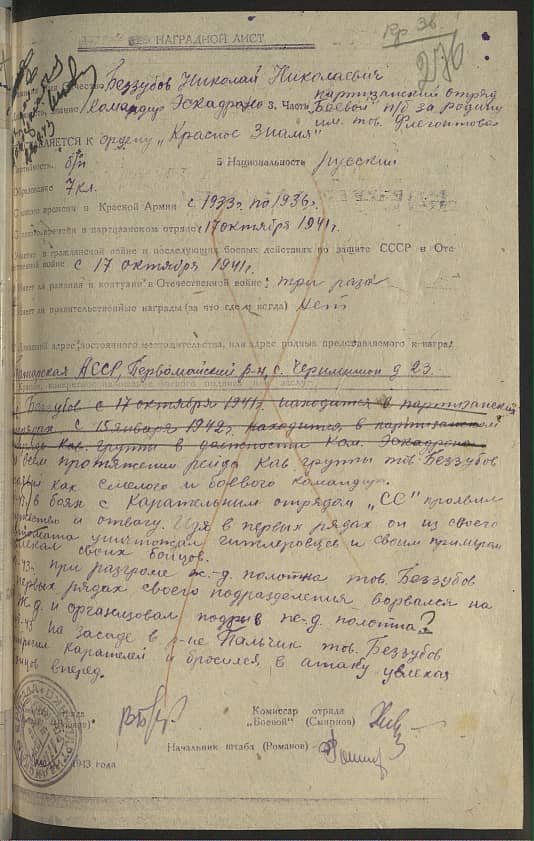 НАГРАДНОЙ ЛИСТ
Кр Зв
276
Беззубов Николай Николаевич
Командир Эскадрона 3. Часть партизанский отряд
"Боевой" п/б за Родину
им. тов. Флегонтова
ВЛЯЕТСЯ К ордену "Красное Знамя"
б/п 5 Национальность русский
Образование 7 кл.
времени в Красной Армии с 1933г. по 1936г.
времени в партизанском отряде с 17 октября 1941г.
в гражданской войне и последующих боевых действиях по защите СССР и Оте-
ственной войне с 17 октября 1941г.
ли ранения и контузии в Отечественной войне: три раза
ли правительственные награды (за что где и когда) нет
Домашний адрес: постоянного местожительства, или адрес родных представляемого к награ
Татарская АССР, Первомайский р-н, с. Черемшан д 23
Беззубов с 17 октября 1941г. находится в партизанских
отрядах с 15 января 1942г. находится в партизанском
Кав. группы в должности Ком. Эскадрона
всем протяжении рейда Кав группы тов. Беззубов
как смелого и боевого командира.
в боях с Карательным отрядом "СС" проявил
мужество и отвагу. Идя в первых рядах он из своего
автомата уничтожал гитлеровцев и своим примером
увлекал своих бойцов.
-43г. при разгроме ж-д. полотна тов. Беззубов
первых рядах своего подразделения ворвался на
ж.д. и организовал подрыв ж-д. полотна ?
-43 на засаде в р-не Пальчик тов. Беззубов
карателей и бросился в атаку увлекая
бойцов вперед.
Комиссар отряда
"Боевой" (Смирнов)
Начальник штаба (Романов)
1943 года